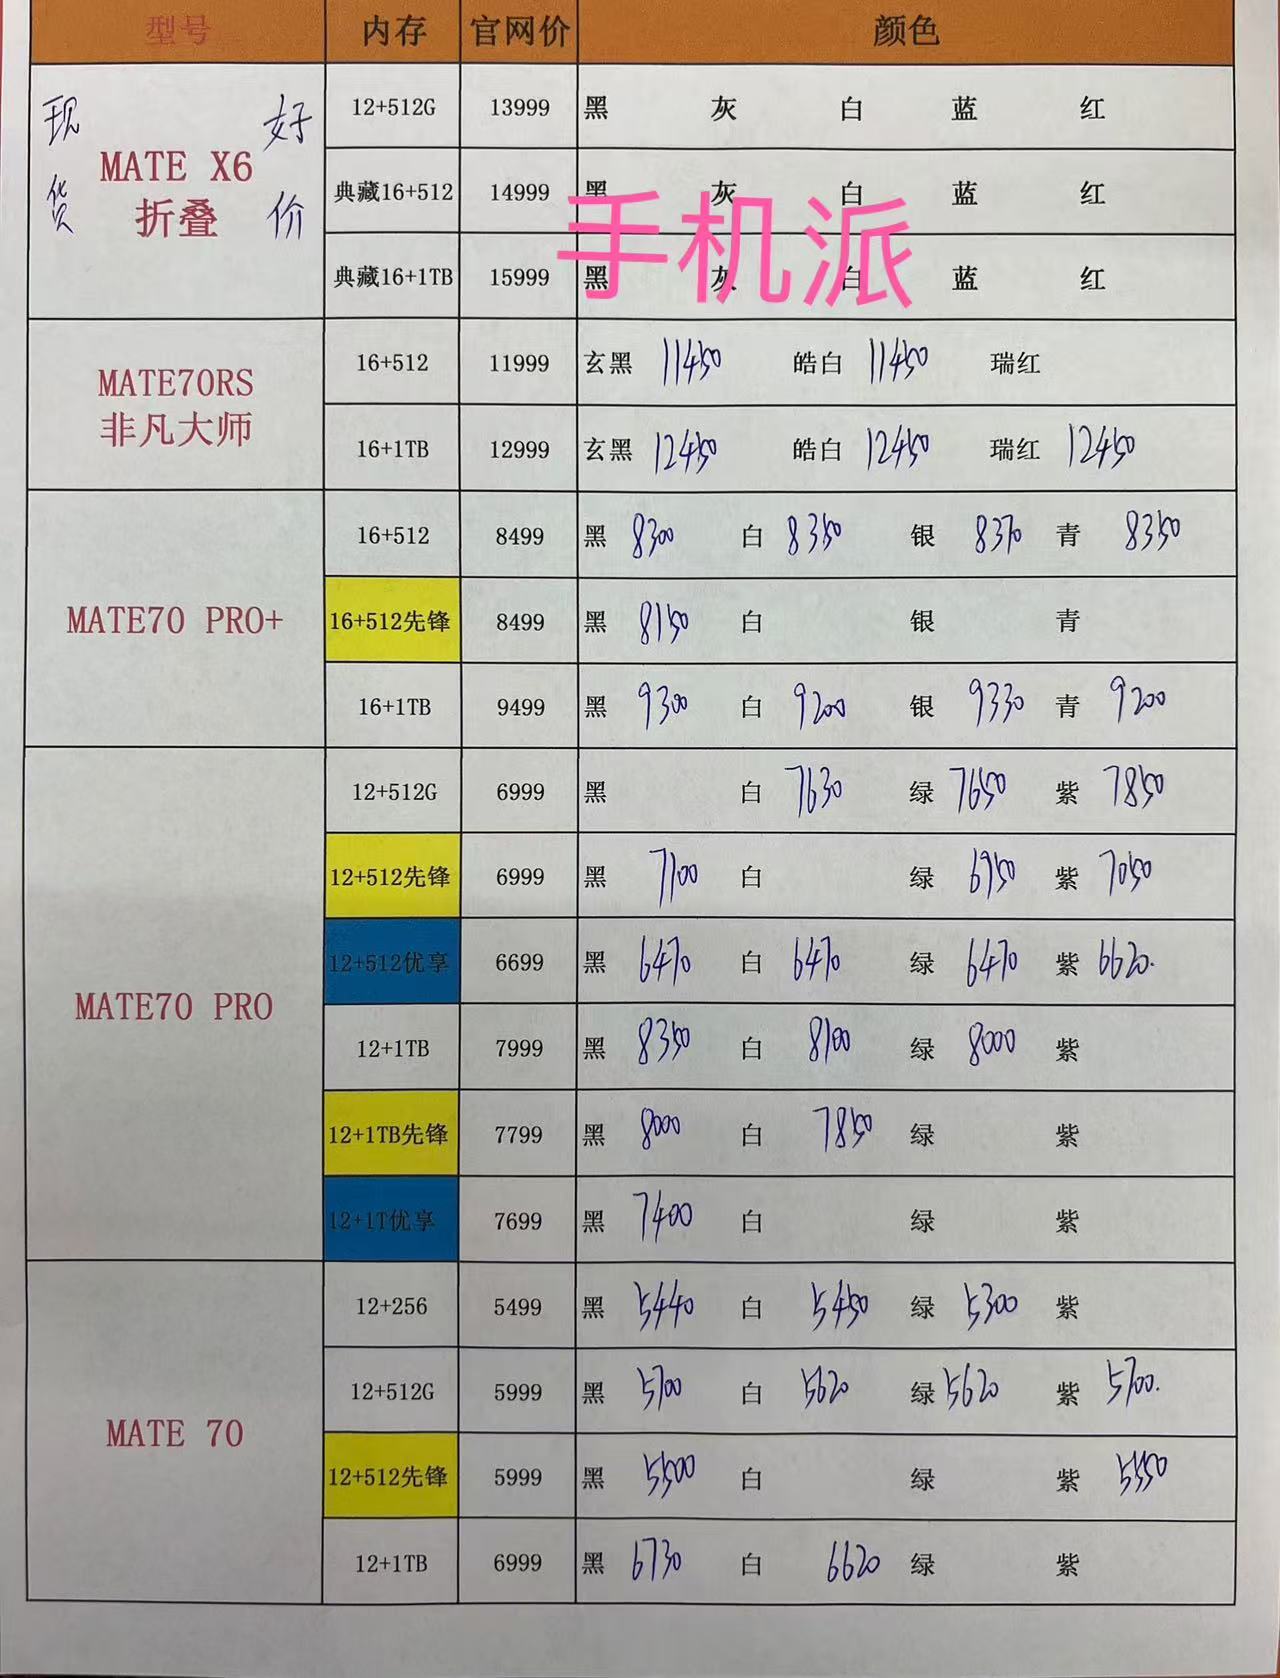 型号 内存 官网价 颜色
现货 好价
MATE X6
折叠
12+512G 13999 黑 灰 白 蓝 红
典藏16+512 14999 黑 灰 白 蓝 红
手机派
典藏16+1TB 15999 黑 灰 白 蓝 红
MATE70RS
非凡大师
16+512 11999 玄黑 11450 皓白 11450 瑞红
16+1TB 12999 玄黑 12450 皓白 12450 瑞红 12450
MATE70 PRO+
16+512 8499 黑 8300 白 8350 银 8370 青 8350
16+512先锋 8499 黑 8150 白 银 青
16+1TB 9499 黑 9300 白 9200 银 9330 青 9200
MATE70 PRO
12+512G 6999 黑 白 7630 绿 7650 紫 7850
12+512先锋 6999 黑 7100 白 绿 6950 紫 7050
12+512优享 6699 黑 6470 白 6470 绿 6470 紫 6620.
12+1TB 7999 黑 8350 白 8100 绿 8000 紫
12+1TB先锋 7799 黑 8000 白 7850 绿 紫
12+1T优享 7699 黑 7400 白 绿 紫
MATE 70
12+256 5499 黑 5440 白 5450 绿 5300 紫
12+512G 5999 黑 5700 白 5620 绿 5620 紫 5700.
12+512先锋 5999 黑 5500 白 绿 紫 5550
12+1TB 6999 黑 6730 白 6620 绿 紫